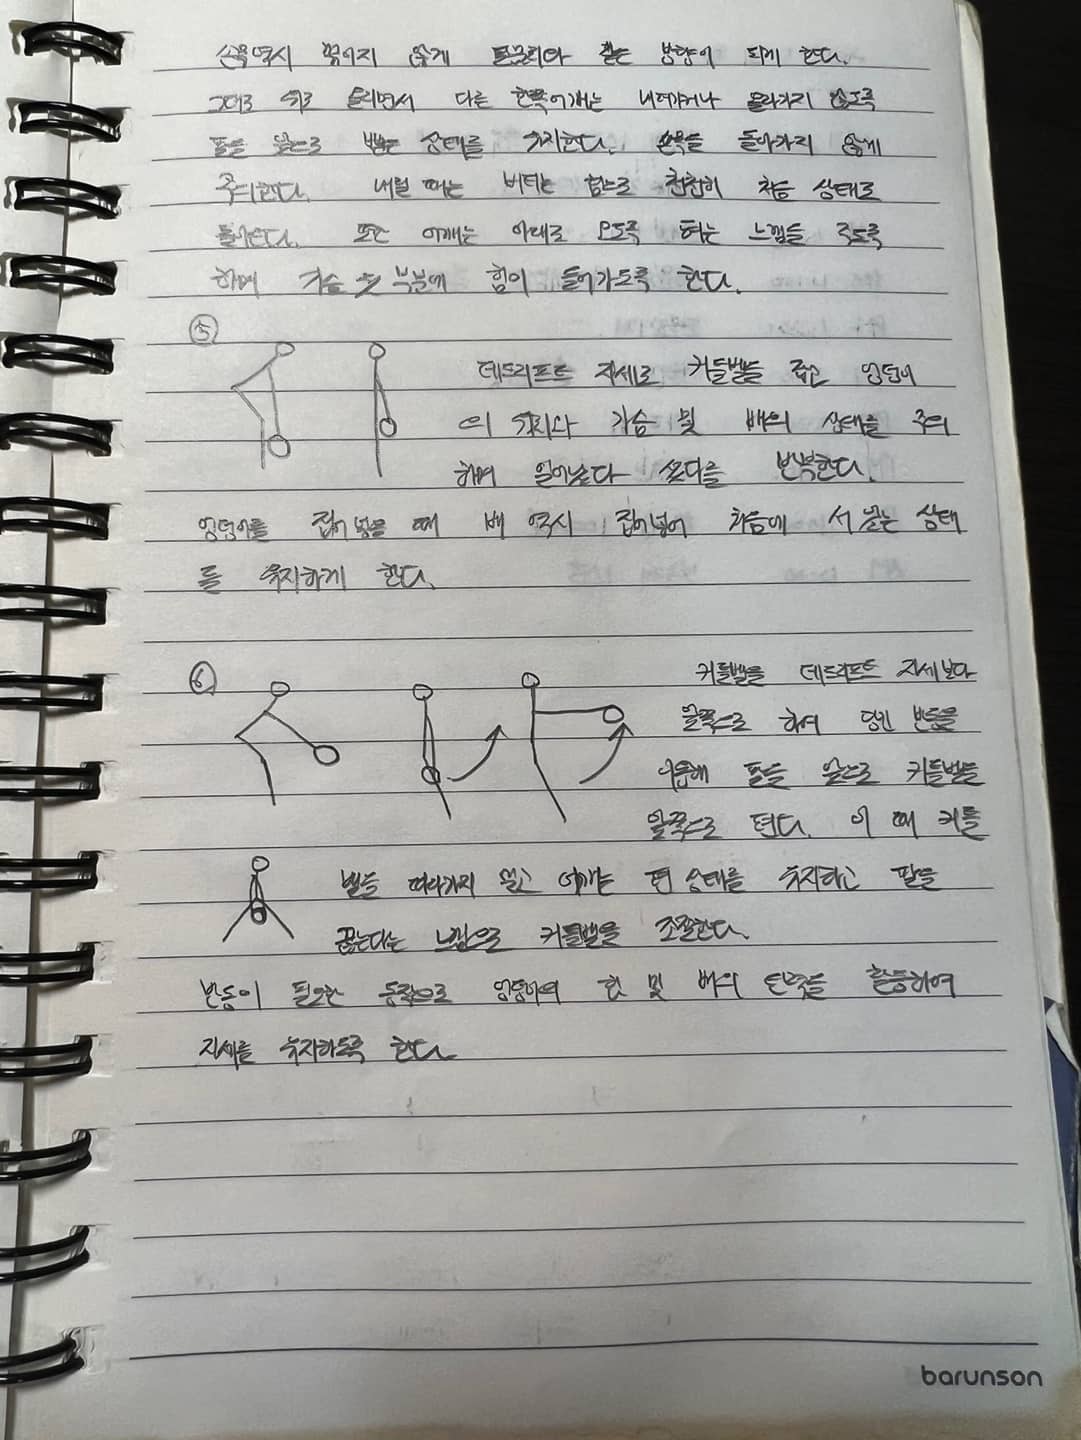 손목 역시 꺾이지 않게 같은 방향이 되게 한다.
그대로 위로 올리면서 다른 한쪽 어깨는 내려가거나 올라가지 않도록
팔을 앞으로 뻗는 상태를 유지한다. 손목을 돌아가지 않게
주의한다. 내릴 때는 버티는 힘으로 천천히 처음 상태로
돌아간다. 또한 어깨는 아래로 오도록 하는 느낌을 주도록
하며 가슴 윗 부분에 힘이 들어가도록 한다.
⑤
데드리프트 자세로 커틀벨을 잡고 엉덩이
의 위치와 가슴 및 배의 상태를 주의
하여 일어섰다 숙이다를 반복한다.
엉덩이를 집어넣을 때 배 역시 집어넣어 처음에 서 있는 상태
를 유지하게 한다.
⑥
커틀벨을 데드리프트 자세보다
앞쪽으로 하여 당긴 반동을
이용해 팔을 앞으로 커틀벨을
앞쪽으로 편다. 이 때 커틀
벨을 따라가지 않고 어깨는 편 상태를 유지하고 팔을
끊는다는 느낌으로 커틀벨을 조절한다.
반동이 필요한 동작으로 엉덩이의 힘 및 배의 반동을 활용하여
자세를 유지하도록 한다.
barunson